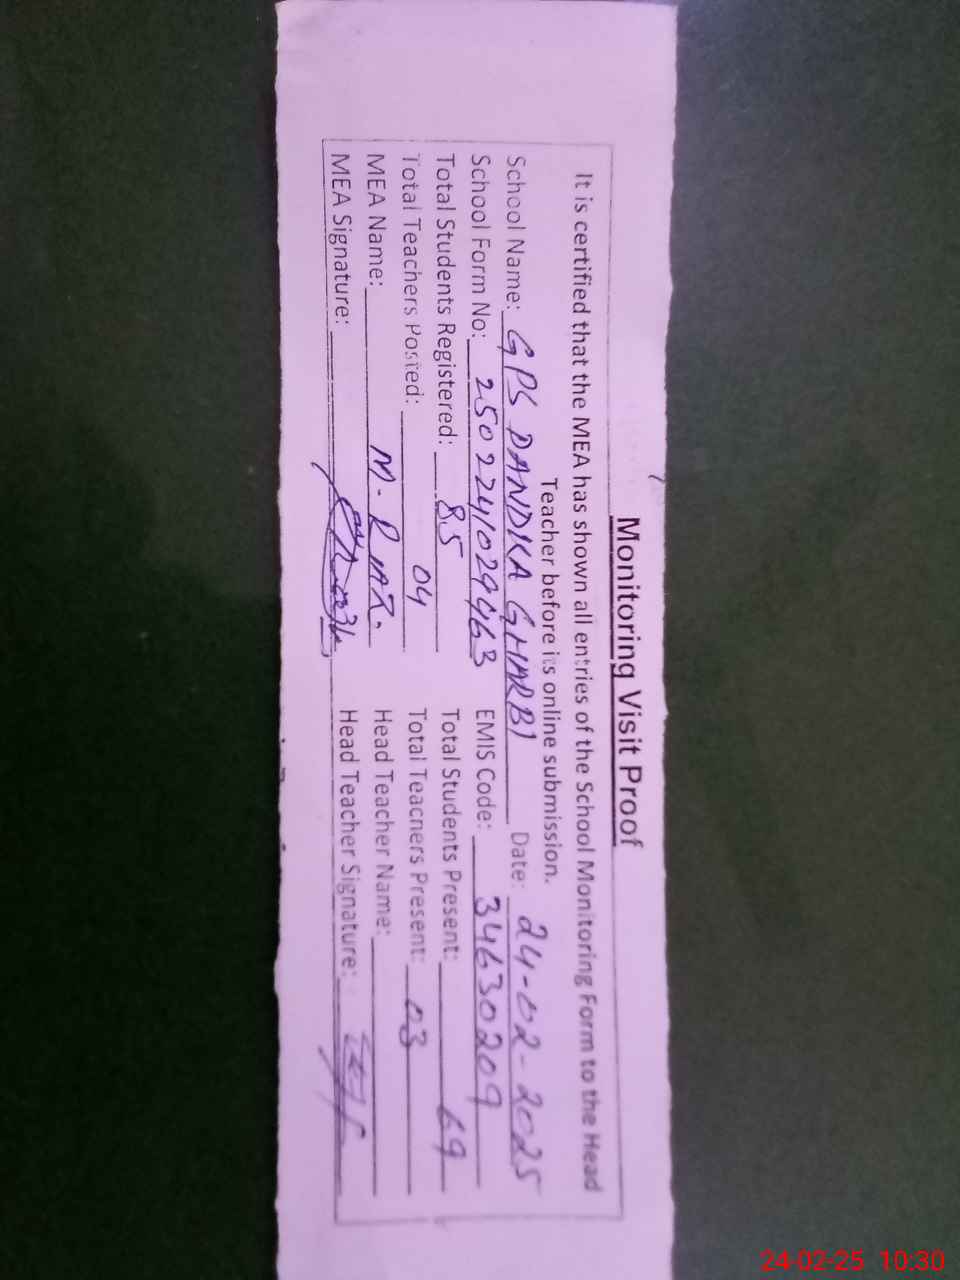 Monitoring Visit Proof
It is certified that the MEA has shown all entries of the School Monitoring Form to the Head
Teacher before its online submission.
School Name: GPS DANDKA GHARBI Date: 24-02-2025
School Form No: 2502241029463 EMIS Code: 34630209
Total Students Registered: 85 Total Students Present: 69
Total Teachers Posted: 04 Total Teachers Present: 03
MEA Name: M. RIAZ. Head Teacher Name:
MEA Signature: Head Teacher Signature:
24-02-25 10:30